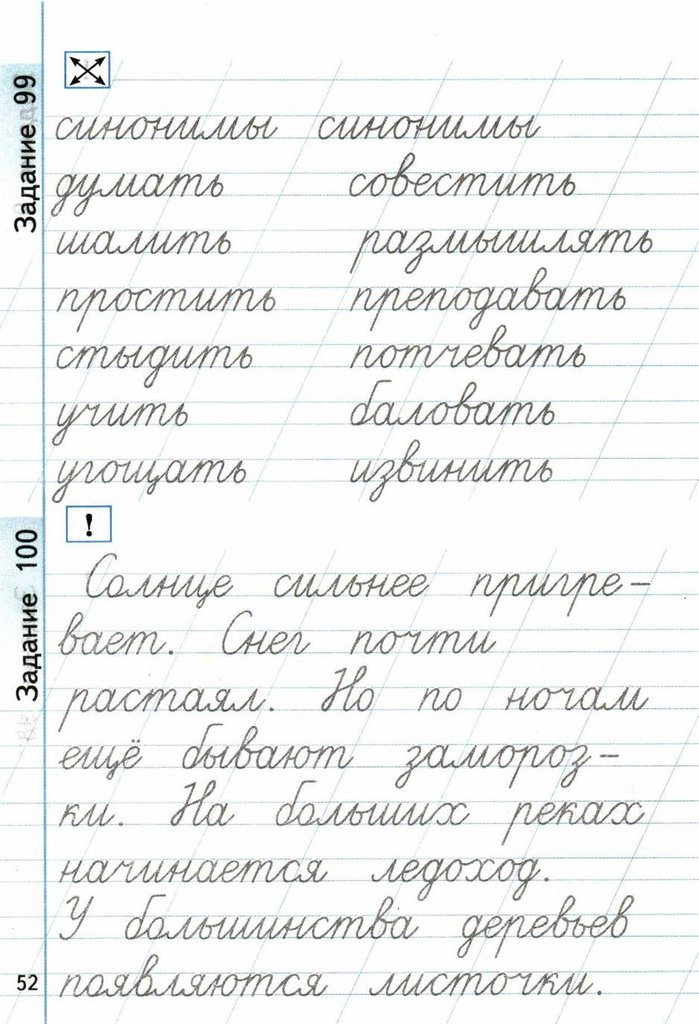 Задание 99
синонимы синонимы
думать совестить
шалить размышлять
простить преподавать
стыдить потчевать
учить баловать
угощать извинить
Задание 100
!
Солнце сильнее пригре-
вает. Снег почти
растаял. Но по ночам
ещё бывают замороз-
ки. На больших реках
начинается ледоход.
У большинства деревьев
появляются листочки.
52